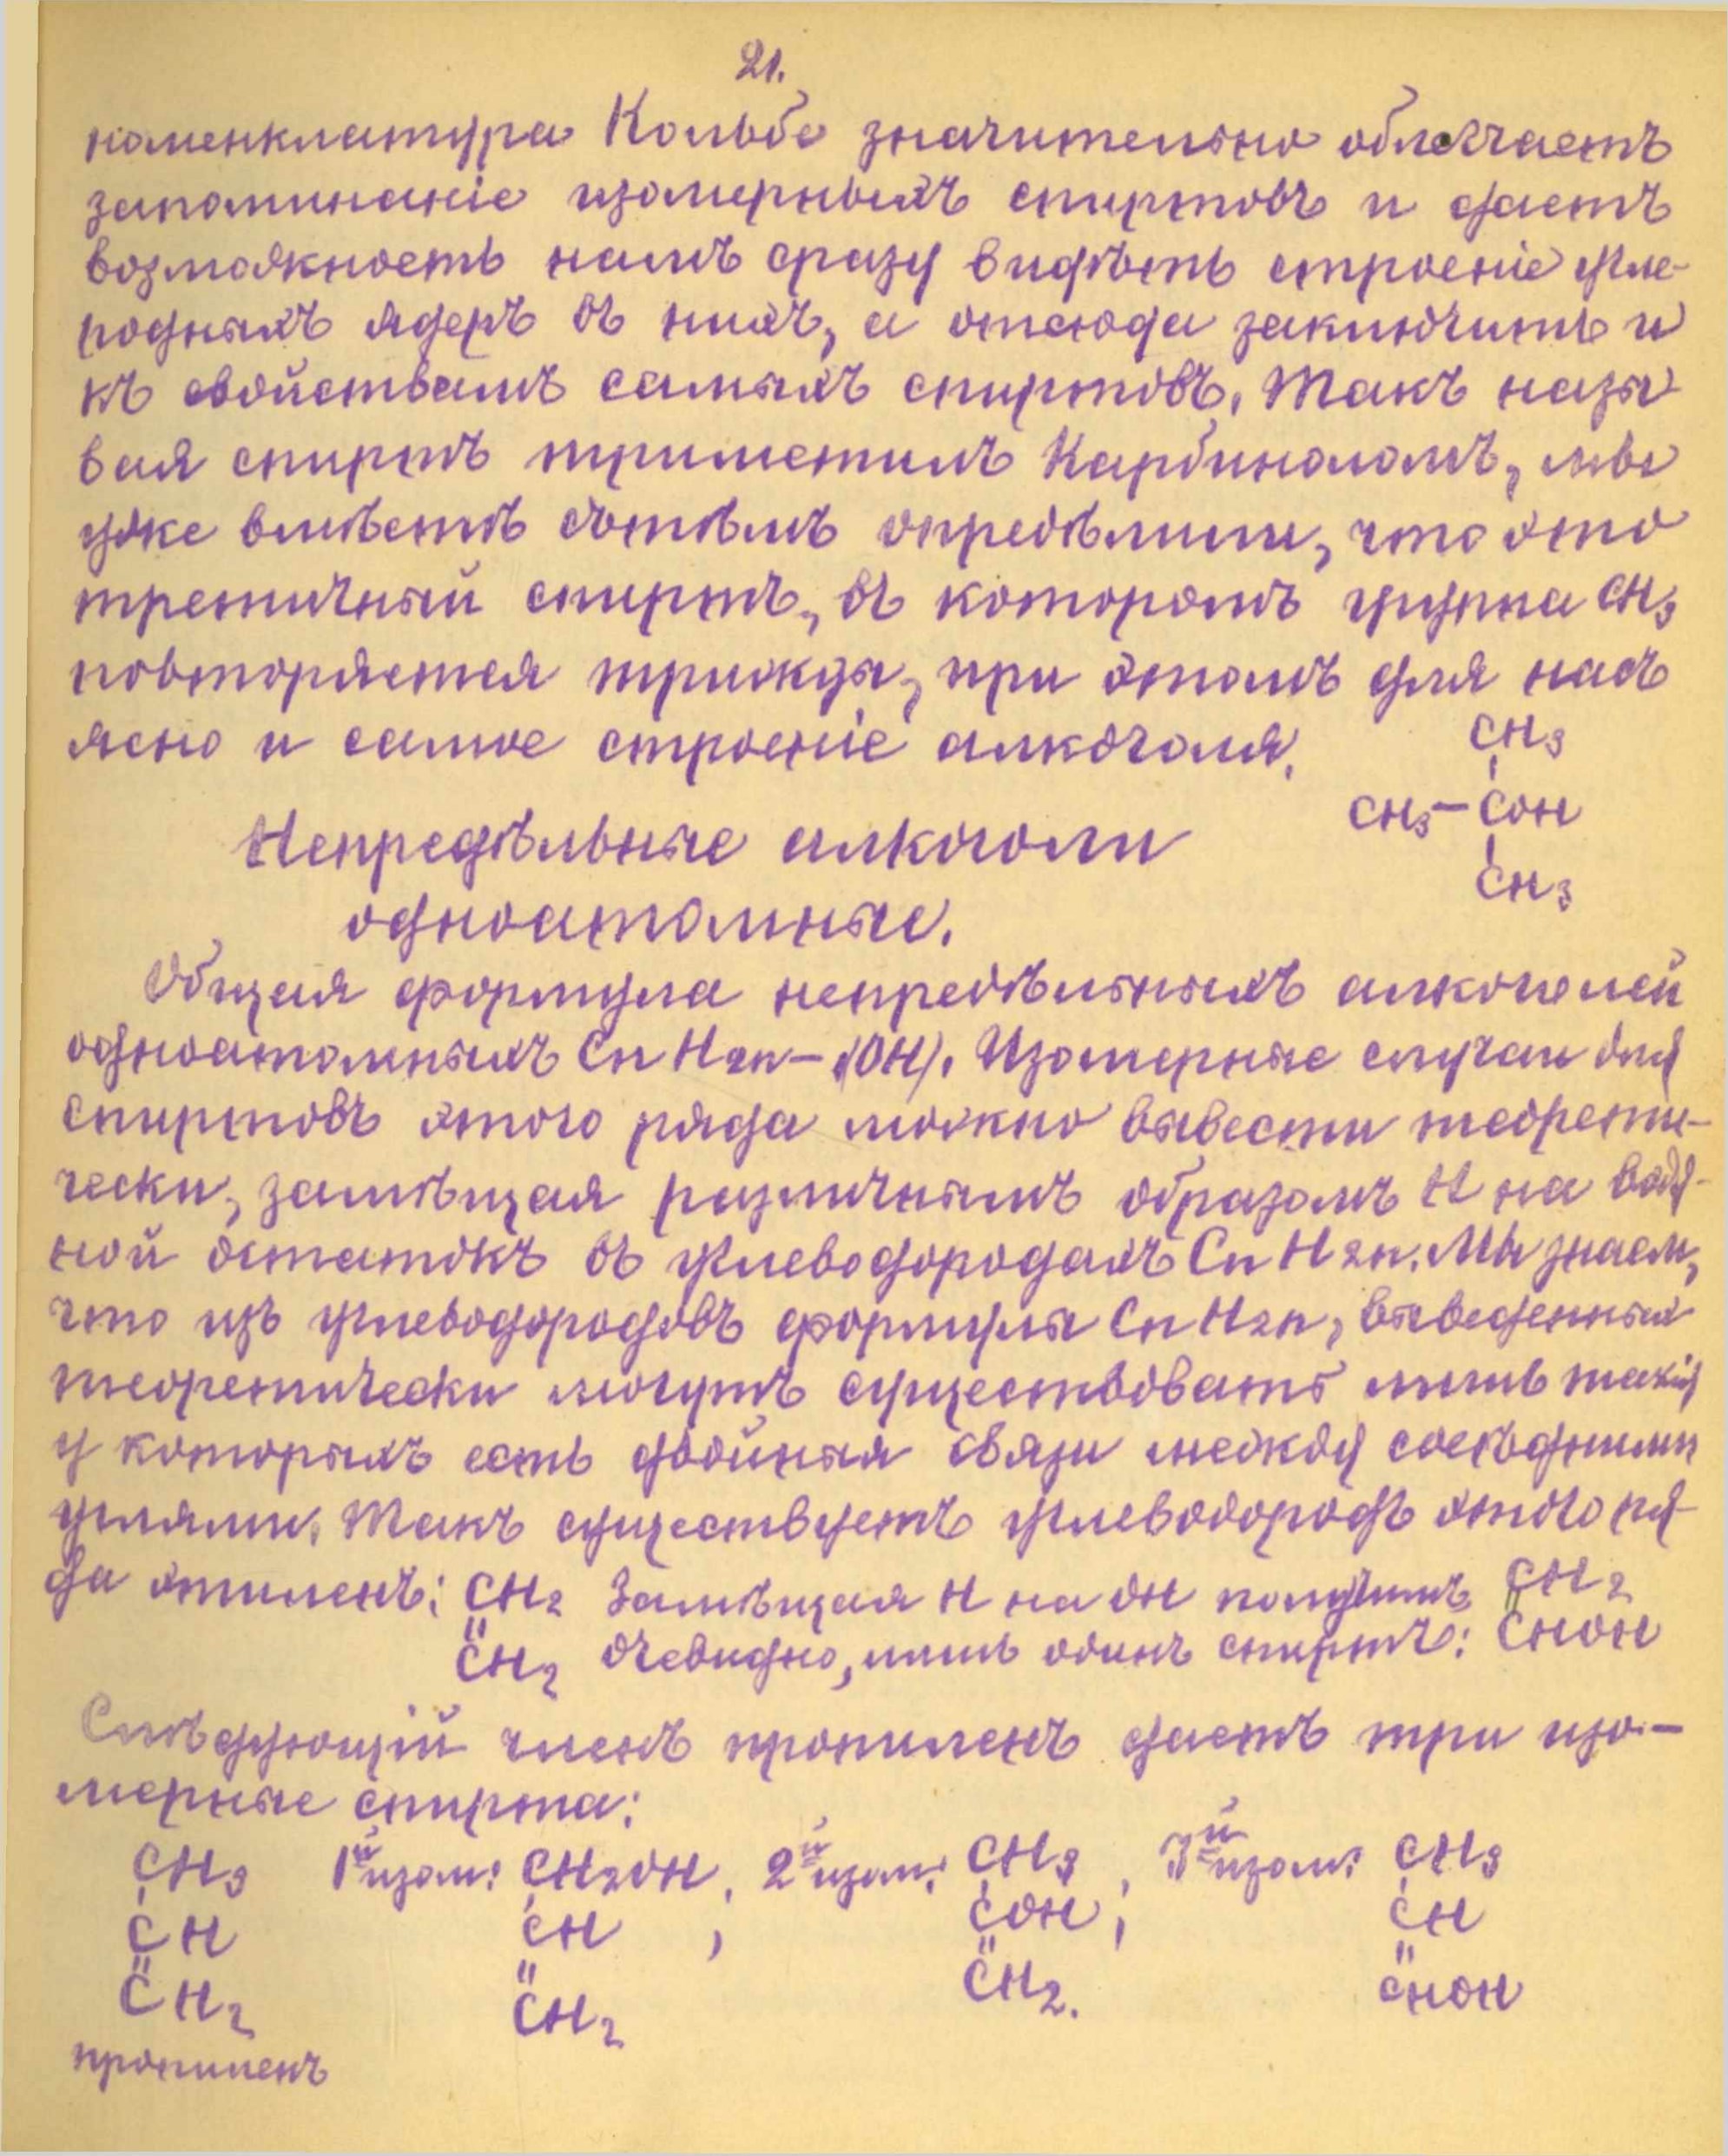 21.
номенклатура Кольбе значительно облегчаетъ
запоминаніе изомерныхъ спиртовъ и даетъ
возможность намъ сразу видѣть строеніе угле-
родныхъ ядеръ въ нихъ, а отсюда заключить и
къ свойствамъ самыхъ спиртовъ. Такъ назы-
вая спиртъ триметилъ Карбиноломъ, мы
уже вмѣстѣ съ тѣмъ опредѣлили, что это
третичный спиртъ, въ которомъ группа CH3
повторяется трижды, при этомъ для насъ
ясно и самое строеніе алкоголя.
CH3
CH3–COH
CH3
Непредѣльные алкоголи
одноатомные.
Общая формула непредѣльныхъ алкоголей
одноатомныхъ CnH2n–1(OH). Изомерные случаи для
спиртовъ этого ряда можно вывести теорети-
чески, замѣщая различнымъ образомъ H на водя-
ной остатокъ въ углеводородахъ CnH2n. Мы знаем,
что изъ углеводородовъ формулы CnH2n, выведенныя
теоретически могутъ существовать лишь такія
у которыхъ есть двойныя связи между сосѣдними
углями. Такъ существуетъ углеводородъ этого ря-
да этиленъ: CH2 Замѣщая H на OH получимъ, CH2
CH2 очевидно, лишь одинъ спиртъ: CHOH
Слѣдующій членъ пропиленъ даетъ три изо-
мерные спирта:
CH3 1й изом: CH2OH, 2й изом: CH3, 3й изом: CH3
CH CH ; COH ; CH
CH2 CH2 CH2. CHOH
пропиленъ